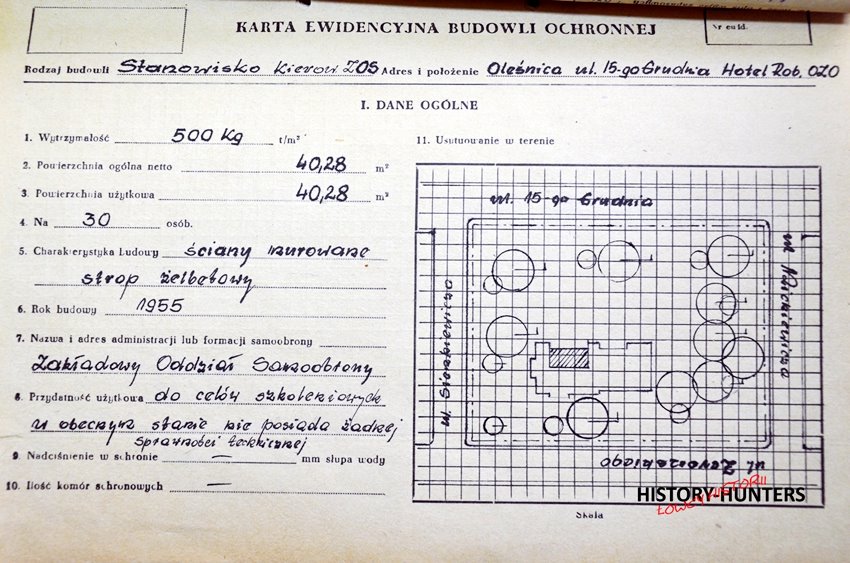 KARTA EWIDENCYJNA BUDOWLI OCHRONNEJ
Nr ewid.
Rodzaj budowli Stanowisko Kierow ZOS Adres i położenie Oleśnica ul. 15-go Grudnia Hotel Rob. OZO
I. DANE OGÓLNE
1. Wytrzymałość 500 Kg t/m²
2. Powierzchnia ogólna netto 40,28 m²
3. Powierzchnia użytkowa 40,28 m²
4. Na 30 osób.
5. Charakterystyka budowy ściany murowane
strop żelbetowy
6. Rok budowy 1955
7. Nazwa i adres administracji lub formacji samoobrony
Zakładowy Oddział Samoobrony
8. Przydatność użytkowa do celów szkoleniowych
w obecnym stanie nie posiada żadnej
sprawności technicznej
9. Nadciśnienie w schronie — mm słupa wody
10. Ilość komór schronowych —
11. Usytuowanie w terenie
ul. 15-go Grudnia
ul. Sienkiewicza
ul. Mickiewicza
ul.
Skala
HISTORY-HUNTERS
ŁOWCY HISTORII